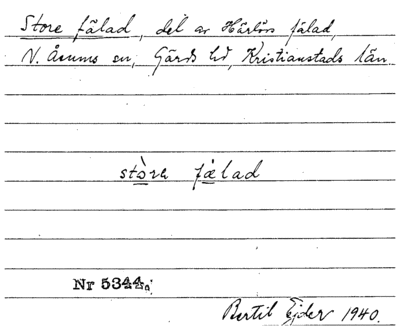 Store fälad, del av Härlövs fälad,
N. Åsums sn, Gärds hd, Kristianstads län.
stòrɐ fæ̀lad
Nr 5344a
Bertil Ejder 1940.